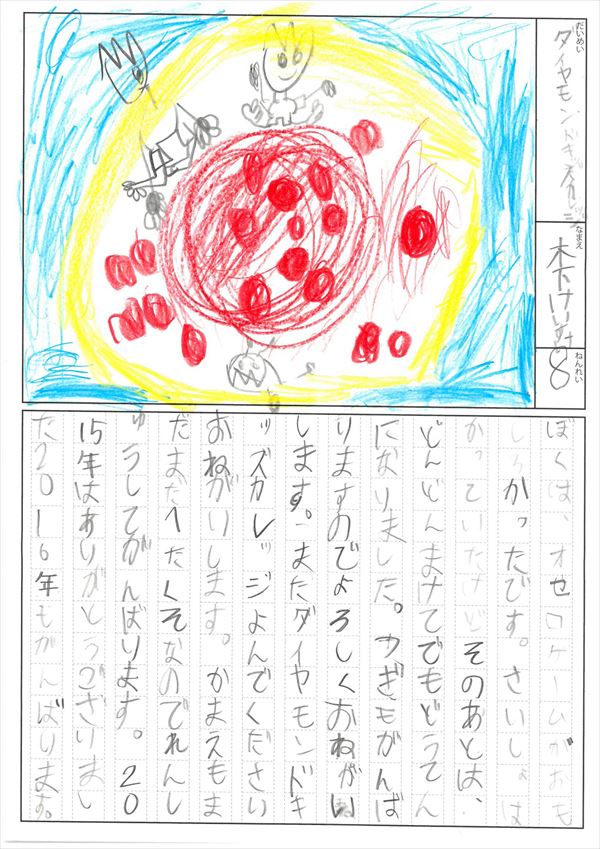 だいめい
ダイヤモンドキッズカレッジ
なまえ
木下
ねんれい
8
ぼくは、オセロゲームがおも
しろかったです。さいしょは
かっていたけど、そのあとは、
どんどんまけてでもどうてん
になりました。つぎもがんば
りますのでよろしくおねがい
します。またダイヤモンドキ
ッズカレッジよんでください
おねがいします。かまえもま
だまだへたくそなのでれんし
ゅうしてがんばります。20
15年はありがとうございまし
た2016年もがんばります。